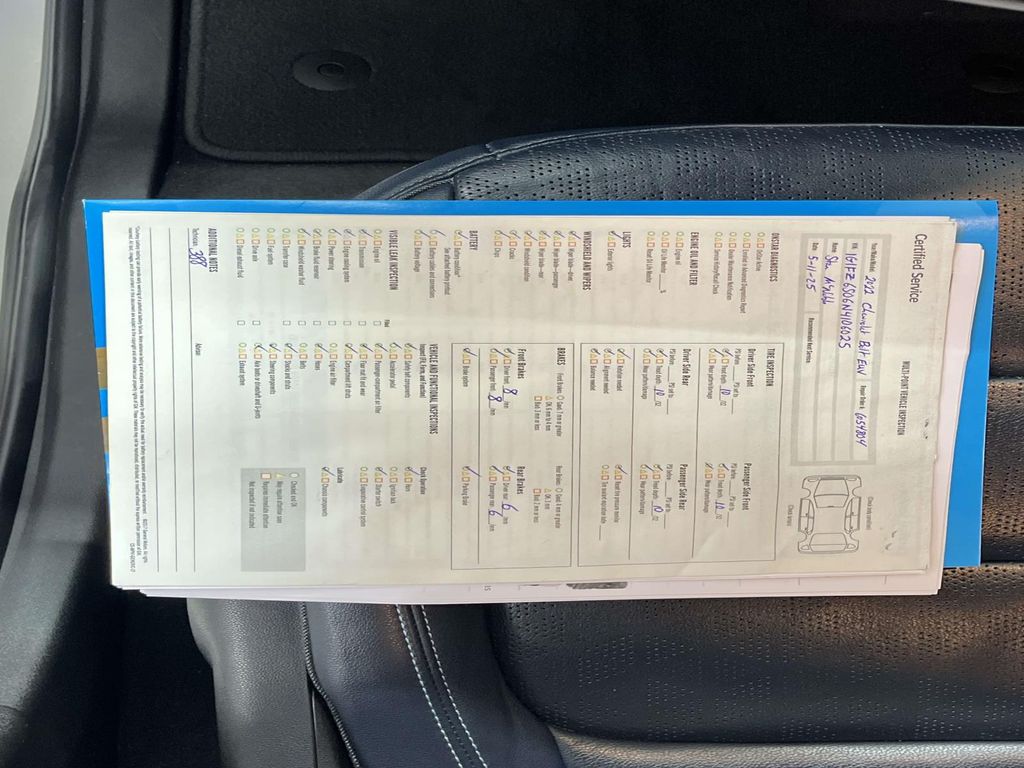 Certified Service
MULTI-POINT VEHICLE INSPECTION
Year/Make/Model: 2022 Chevrolet Bolt EUV
Repair Order #: 654804
Name:
Date: 5-11-25
Recommended Next Service:
ONSTAR DIAGNOSTICS
OnStar Active
Enrolled in Advanced Diagnostics Report
Dealer Maintenance Notification
ENGINE OIL AND FILTER
Engine oil
Oil Life Monitor %
Reset Oil Life Monitor
LIGHTS
Exterior Lights
WINDSHIELD AND WIPERS
Wiper blade—driver
Wiper blade—passenger
Wiper blade—rear
Windshield condition
Cracks
Chips
BATTERY
Battery condition*
See attached battery printout
Battery cables and connections
Battery voltage
VISIBLE LEAK INSPECTION
Filled
Engine oil
Transmission
Engine cooling system
Power steering
Brake fluid reservoir
Windshield washer fluid
Transfer case
Fuel system
Drive axle
Diesel exhaust fluid
ADDITIONAL NOTES
Technician 308
Advisor
TIRE INSPECTION
Driver Side Front
PSI before PSI set to
Tread depth 10 /32
Wear pattern/damage
Driver Side Rear
PSI before PSI set to
Tread depth 10 /32
Wear pattern/damage
Rotation needed
Alignment needed
Balance needed
Passenger Side Front
PSI before PSI set to
Tread depth 10 /32
Wear pattern/damage
Passenger Side Rear
PSI before PSI set to
Tread depth 10 /32
Wear pattern/damage
Reset tire pressure monitor
BRAKES
Front Brakes
Driver front 8 mm
Passenger front 8 mm
Brake system
Rear Brakes
Driver rear 6 mm
Passenger rear 6 mm
Parking brake
VEHICLE AND FUNCTIONAL INSPECTIONS
Inspect (Fit, Form, and Function)
Safety belt components
Accelerator pedal
Passenger compartment air filter
Floor mat fit and wear
Compartment lift struts
Engine air filter
Hoses
Belts
Shocks and struts
Steering components
Axle boots or driveshaft and U-joints
Exhaust system
Check Operation
Horn
Ignition lock
Starter switch
Evaporative control system
Lubricate
Chassis components
Checked and OK
May require attention soon
Requires immediate attention
Not inspected if not indicated